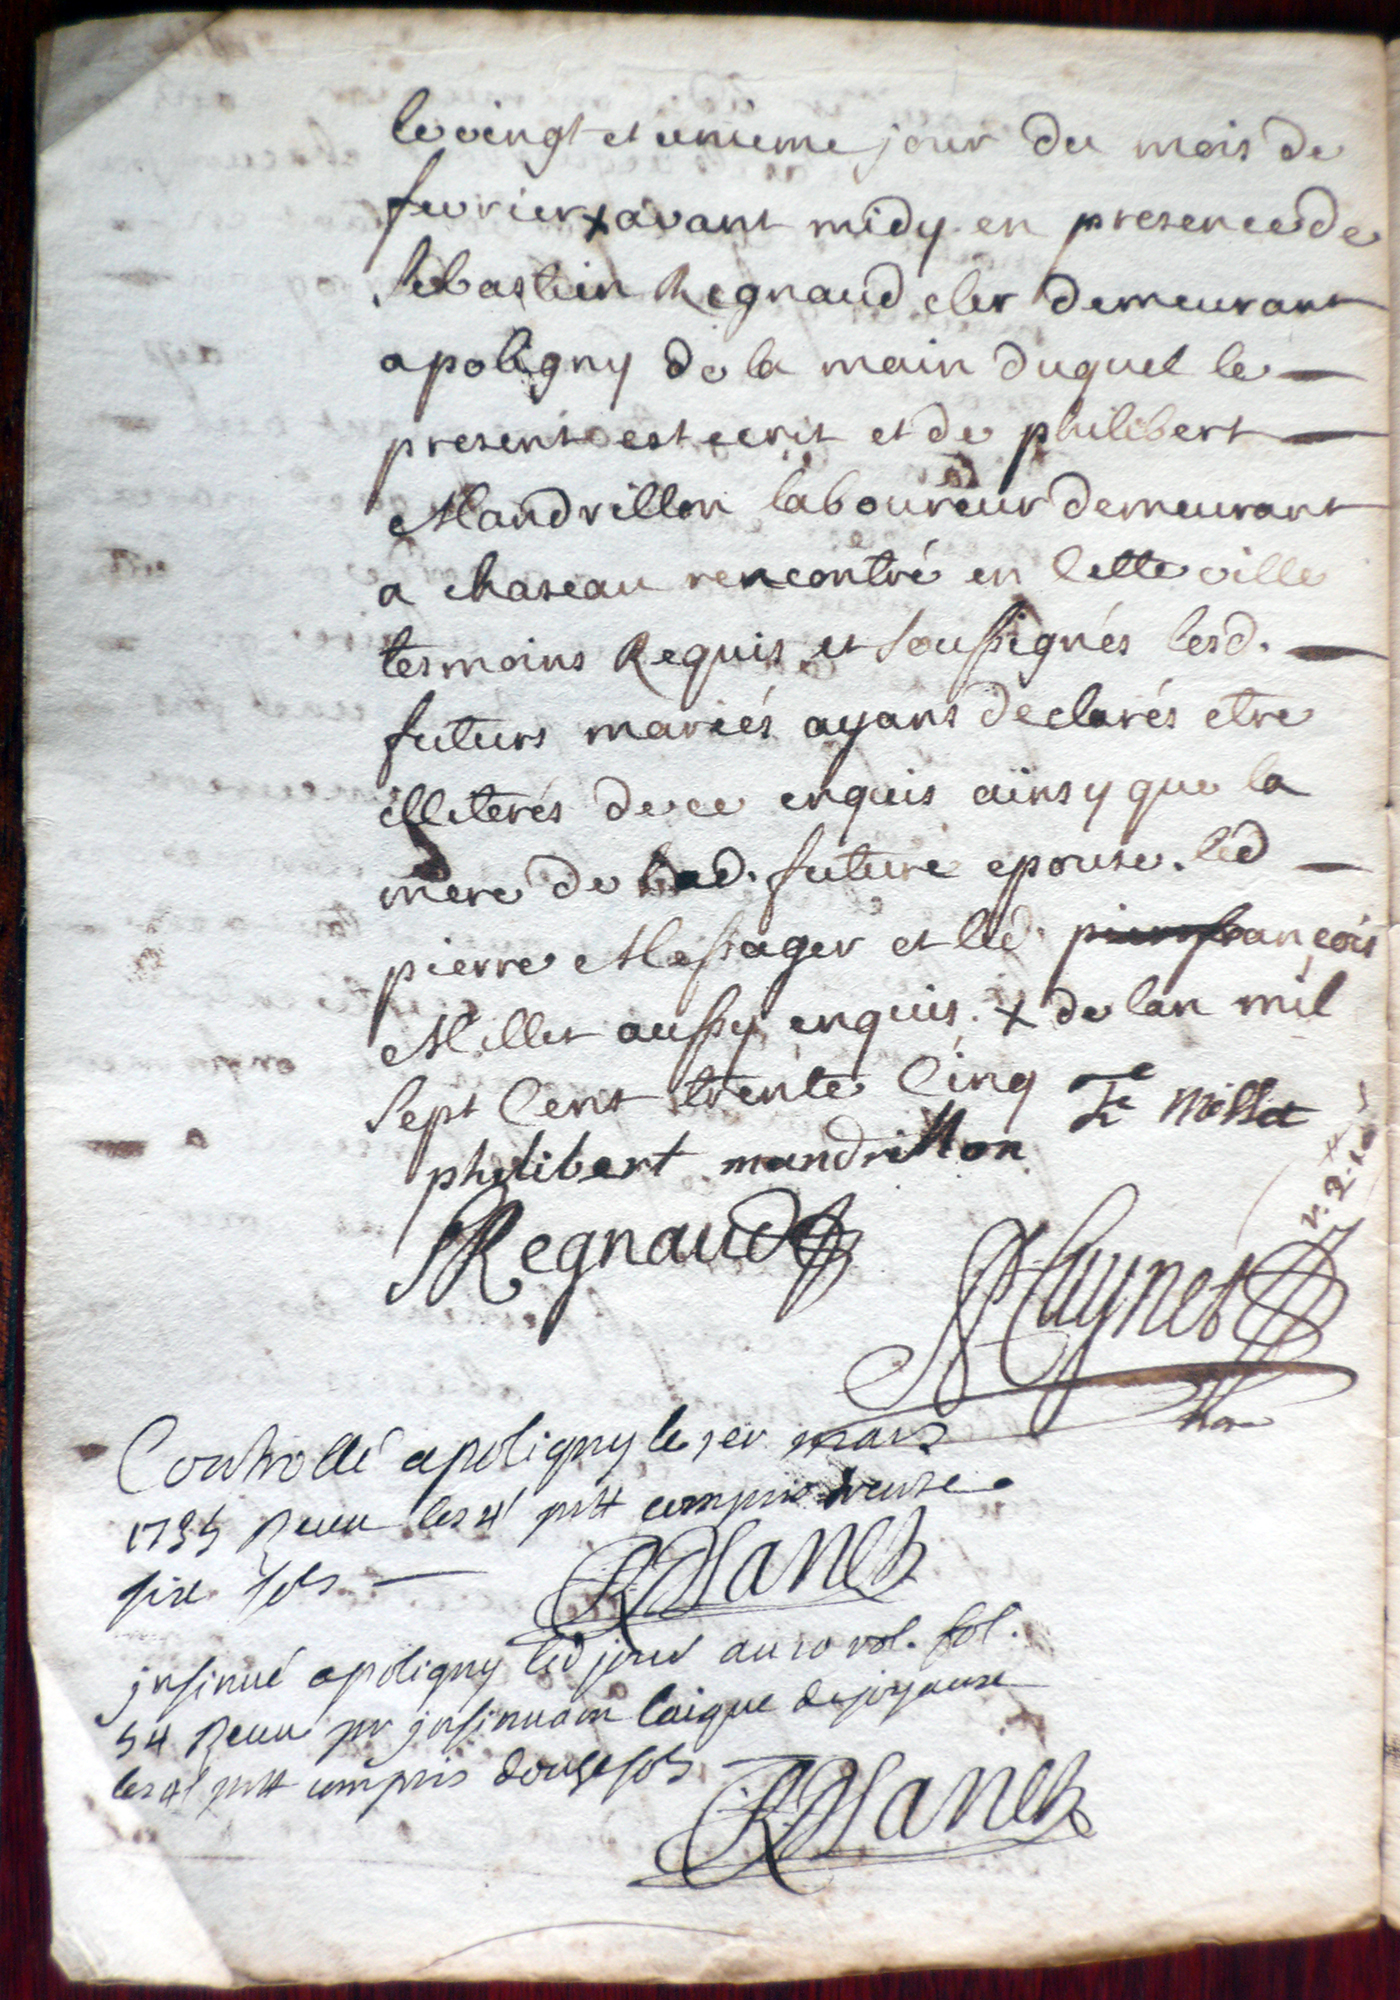 le vingt et unieme jour du mois de
fevrier x avant midy en presence de
Sebastien Regnaud cler demeurant
a poligny de la main duquel le
present est ecrit et de philibert
Mandrillon laboureur demeurant
a chaseau rencontré en cette ville
tesmoins Requis et soussignés lesd.
futurs mariés ayans declarés etre
illiterés de ce enquis ainsy que la
mere de lad. future epouse. led
pierre Messager et led. françois
Millet aussy enquis. x de lan mil
Sept Cent trente Cinq Fe millet
philibert mandrillon
SRegnaud
Controllé a poligny le 1er mars
1735 Receu les 4s pr tt compris treize
sixe sols
insinué a poligny led jour au 10 vol. fol.
54 Receu pr insinuaon laique de joyaux
les 4s pr tt compris douze sols